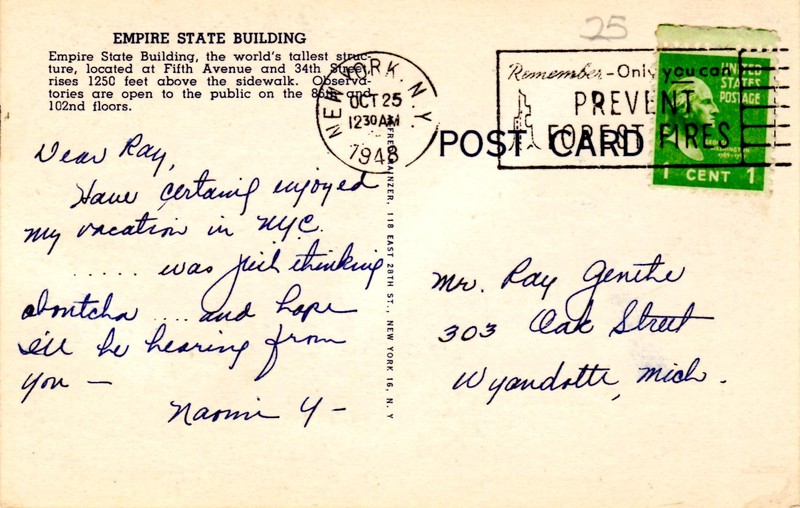 25
EMPIRE STATE BUILDING
Empire State Building, the world's tallest struc-
ture, located at Fifth Avenue and 34th Street,
rises 1250 feet above the sidewalk. Observa-
tories are open to the public on the 86th and
102nd floors.
NEW YORK, N.Y.
OCT 25
12 30 AM
1948
Remember-Only you can
PREVENT
FOREST FIRES
UNITED
STATES
POSTAGE
1 CENT 1
POST CARD
Dear Ray,
Have certaing enjoyed
my vacation in NYC.
...... was just thinking
aboutcha .... and hope
I'll be hearing from
you —
Naomi Y -
MAINZER, 118 EAST 28TH ST., NEW YORK 16, N. Y
Mr. Ray Genthe
303 Oak Street
Wyandotte, Mich.